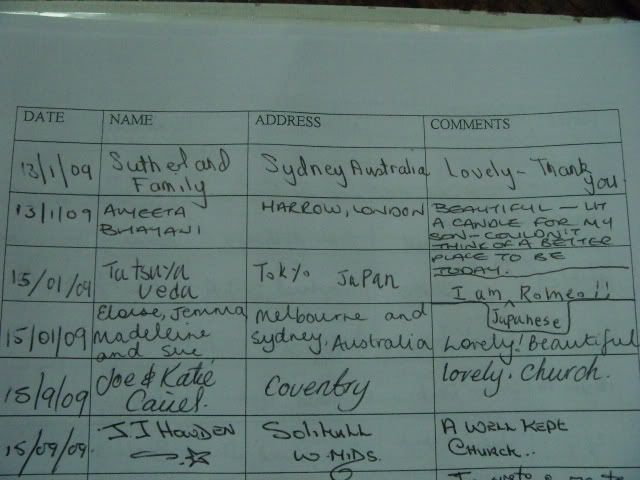 DATE NAME ADDRESS COMMENTS
13/1/09 Sutherland Sydney Australia Lovely - Thank
Family you
13/1/09 AMEETA HARROW, LONDON BEAUTIFUL - LIT
BHAYANI A CANDLE FOR MY
SON - COULDN'T
THINK OF A BETTER
PLACE TO BE
TODAY.
15/01/09 Tatsuya Tokyo Japan
Ueda I am Romeo!!
Japanese
15/01/09 Eloise, Jemma Melbourne and
Madeleine Sydney, Australia Lovely! Beautiful
and Sue
15/9/09 Joe & Katie Coventry lovely. Church.
15/09/09. JJ HOWDEN Solihull A WELL KEPT
W. MIDS. CHURCH..